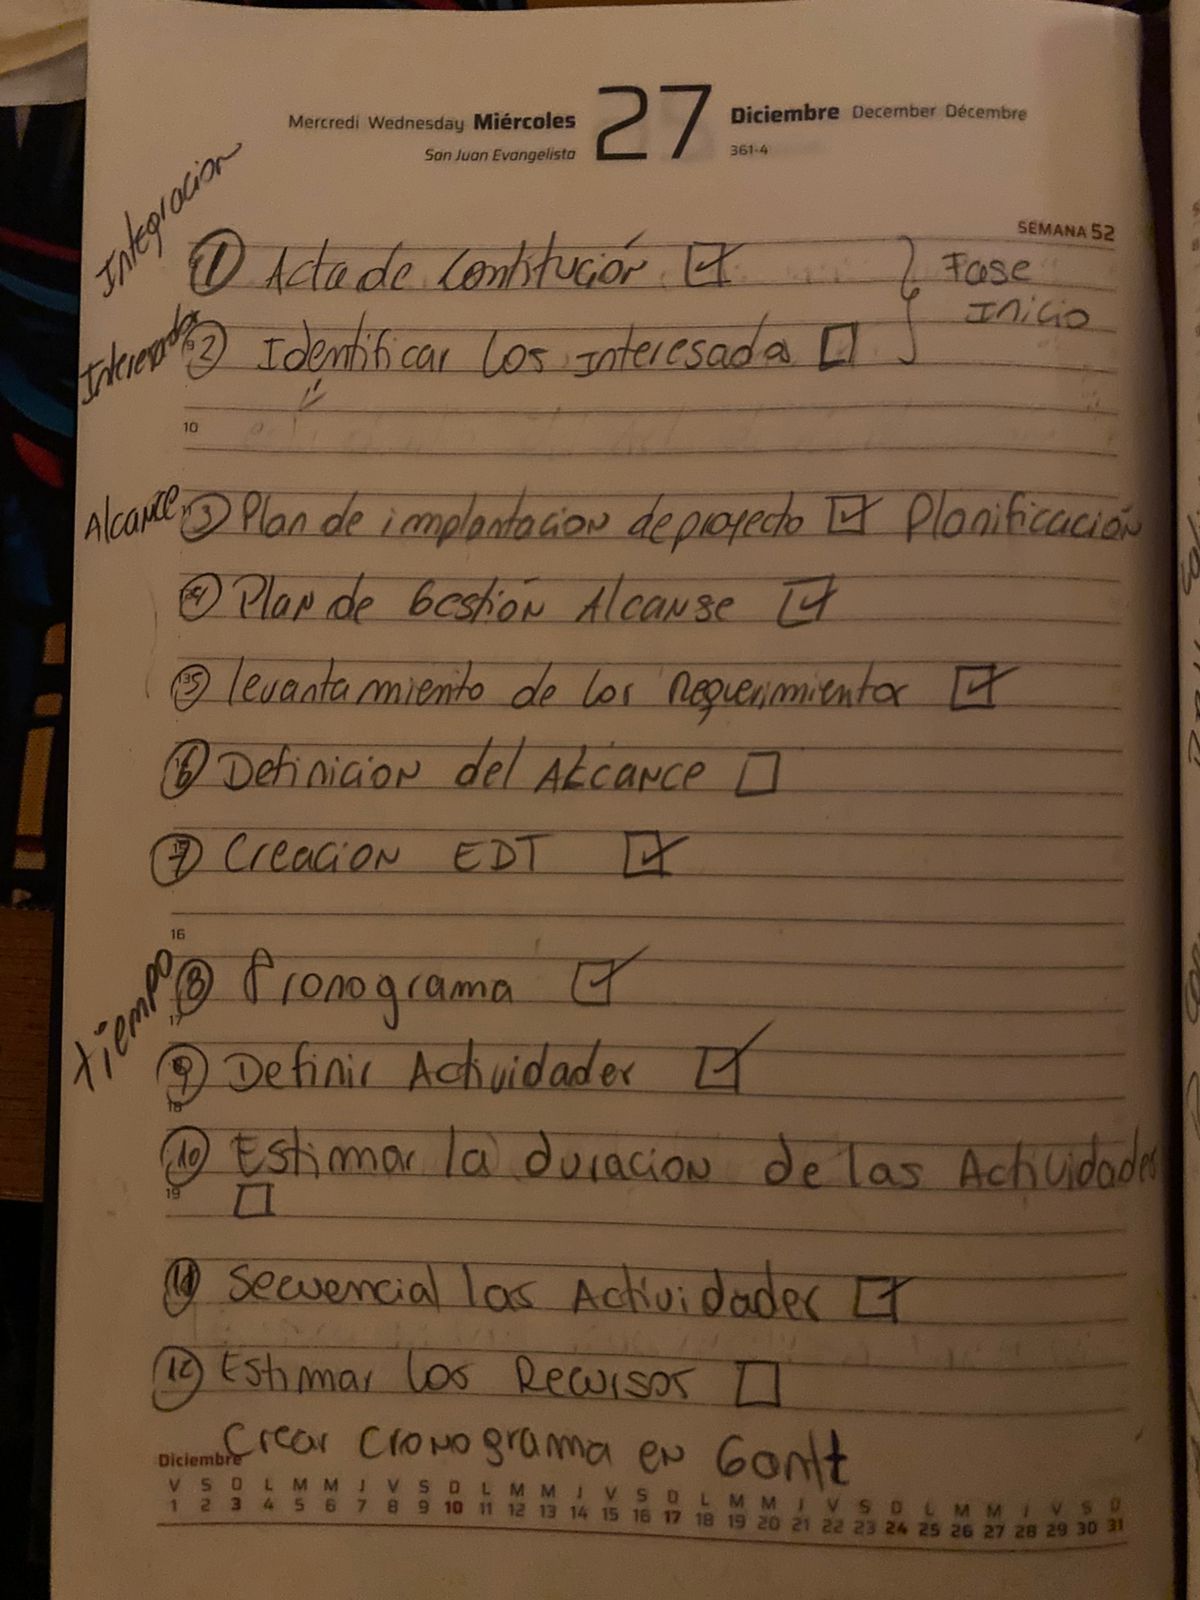 Mercredi Wednesday Miércoles 27 Diciembre December Décembre
San Juan Evangelista 361-4
SEMANA 52
Integracion
① Acta de Contitución ☑ Fase
Inicio
Interesados
② Identificar los Interesada ☐
10
Alcance
③ Plan de implantacion de proyecto ☑ Planificación
④ Plan de Gestión Alcanse ☑
⑤ levantamiento de los Requerimientos ☑
⑥ Definicion del Alcance ☐
⑦ Creacion EDT ☑
16
Tiempo
⑧ Cronograma ☑
17
⑨ Definir Actividades ☑
18
⑩ Estimar la duracion de las Actividades
19 ☐
⑪ Secuencial las Actividades ☑
⑫ Estimar los Recursos ☐
Crear Cronograma en Gantt
Diciembre
V S D L M M J V S D L M M J V S D L M M J V S D L M M J V S D
1 2 3 4 5 6 7 8 9 10 11 12 13 14 15 16 17 18 19 20 21 22 23 24 25 26 27 28 29 30 31